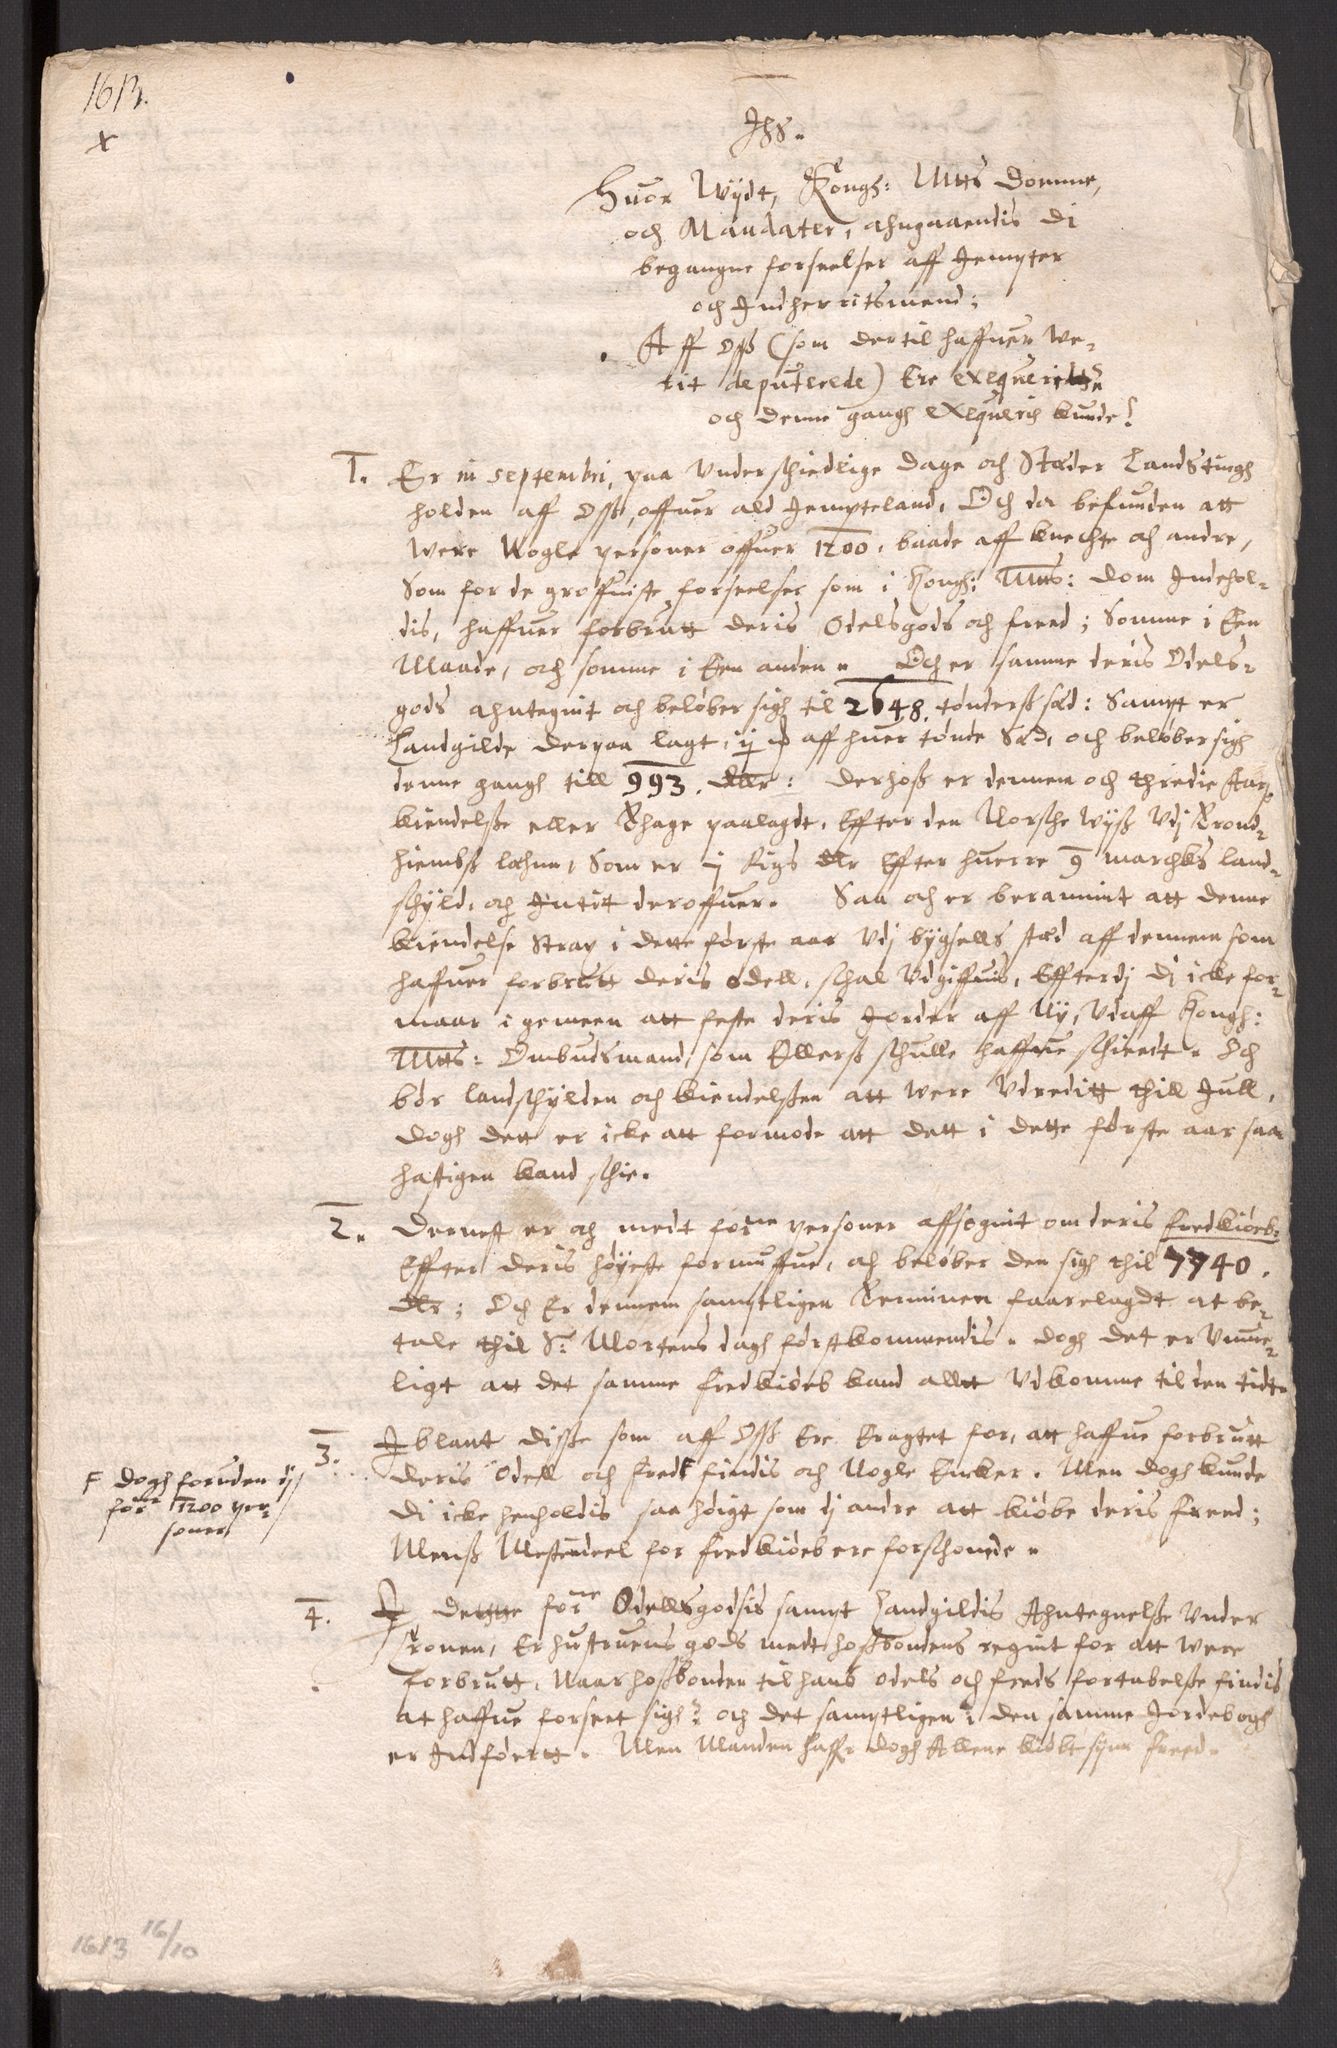 1613.
x
Jhs.
Huor Wijdt, Kongh: Mtts Domme,
och Mandater, ahngaaendis di
begangne forseelser aff Jempter
och Indherritsmend;
Aff Oss (som dertil haffuer We-
rit deputerede) Ere exequerit
och denne gangh exequeris kunde!
1. Er in septembri, paa Underschiedlige dage och Stæder Landstingh
holden aff Oss, offuer ald Jempteland, Och da befunden att
were Nogle personer offuer 1200, baade aff knechte och andre,
Som for de groffuiste forseelser som i Kongh: Mtts: dom Indehol-
dis, haffuer forbrutt deris Odelsgods och freed; Somme i Een
Maade, och somme i Een anden. Och er samme deris Odels-
gods ahntegnit och beløber sigh til 2648, tønderss sæd: Sampt er
Landgilde derpaa lagt, ij aff huer tønde Sæd, och beløber sigh
denne gangh till 993. dlr: derhoss er dennem och thredie Aars
kiendelsse eller Thage paalagdt, Effter den Norsche Wijss Vdj Trond-
hiembss læhnn, Som er j Rigs dlr Effter huerre 9 marchks land-
schyld, och Intit deroffuer. Saa och er beramint att denne
kiendelse Strax i dette første aar Vdj bygsells stæd aff dennem som
haffuer forbrutt deris odell, schal Vdgiffuis, Effterdj dj icke for-
maar i gemeen att feste deris Jorder aff Ny, Vdaff Kongh:
Mtts: Ombudsmand, som Ellerss schulle haffue schieedt. Och
bør landschylden och kiendelssen att were Vdreditt thill Jull,
dogh dett er icke att formode att dett i dette første aar saa
hastigen kand schie.
2. Dernest er och medt forne personer affsognit om deris fredkiøeb:
Effter deris høyeste formuffue, och beløber den sigh thil 7740.
dlr; Och Er dennem samptligen Terminen faarelagdt at be-
tale thil S: Mortens dagh førstkommendis. dogh det er Vmue-
ligt att det samme fredkiøeb kand allt Vdkomme til den tidt
3. Iblant disse som aff Oss Ere Eragtet for, att haffue forbrutt
deris Odell och fred F findis och Nogle Encker. Men dogh kunde
di icke henholdis saa høigt som dj andre att kiøbe deris freed;
Menss Mestendeel for fredkiøeb ere forschonede.
F dogh foruden dj
forne 1200 per-
soner
4. I dette forne Odellsgodsis sampt Landgildis Ahntegnelsse Vnder
Cronen, Er hustruens gods medt hossbondens regnit for att were
forbrutt, Naar hossbonden til hans Odels och freds fortabelsse findis
at haffue forseet sigh: och det samptligen i den samme Jordebogh
er Indførtt. Men Manden haffr dogh Allene kiøbt synn freed.
1613 16/10